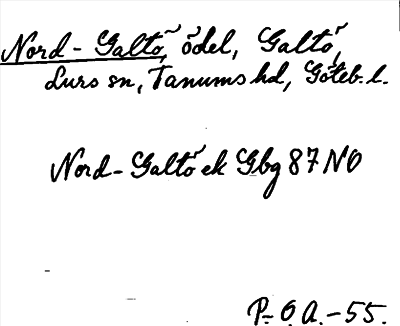 Nord-Galtö, ödel, Galtö,
Lurs sn, Tanums hd, Göteb. l.
Nord-Galtö ek Gbg 87 NO
P. Ö A. -55.